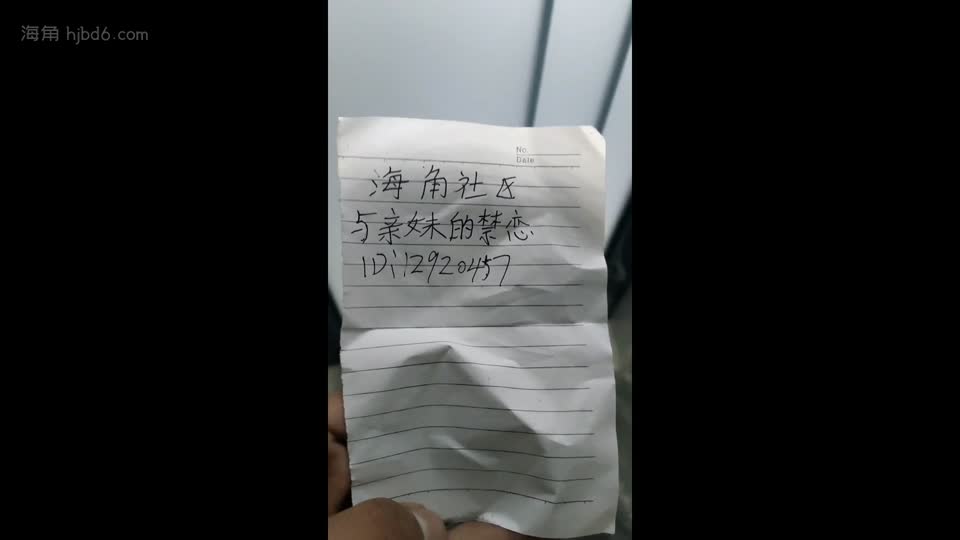 海角 hjbd6.com
No.
Date
海角社区
与亲妹的禁恋
ID:12920457